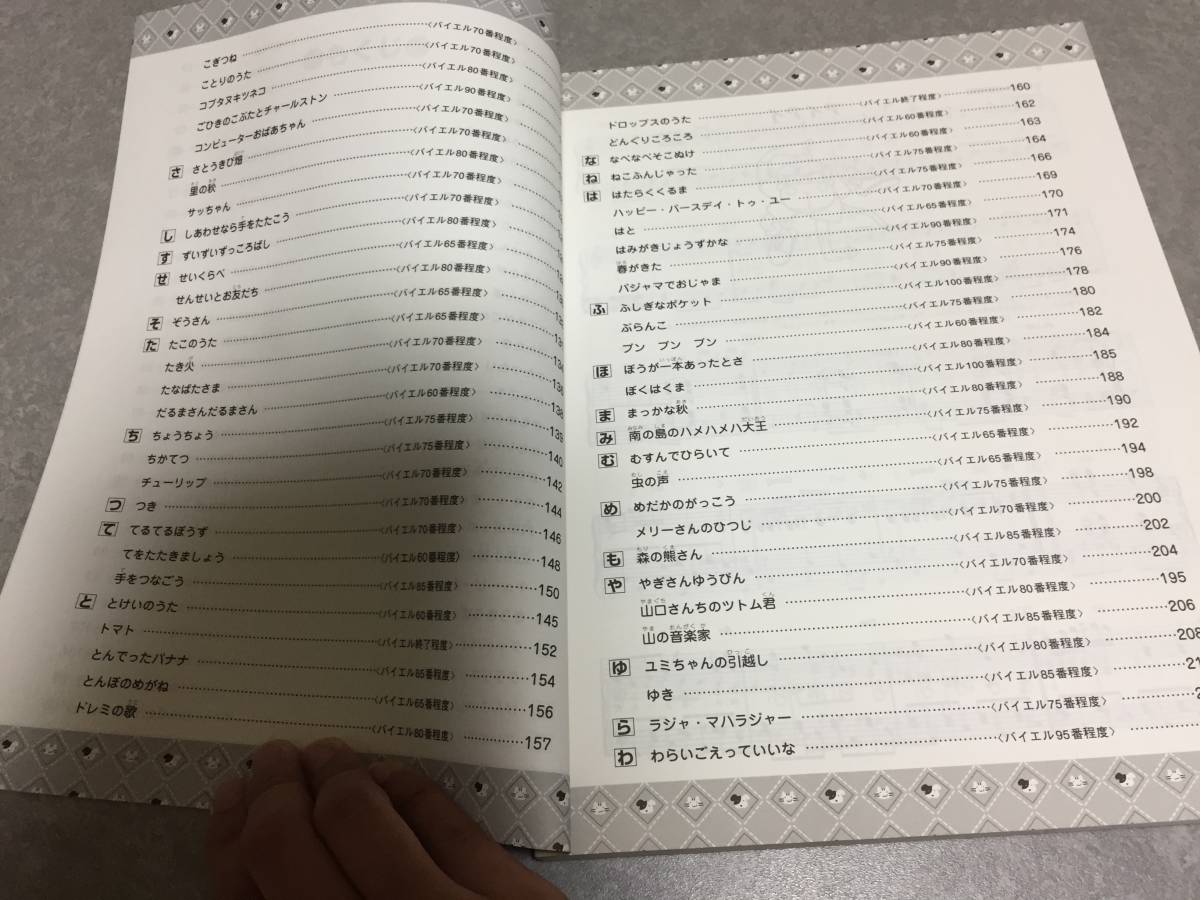 こぎつね 〈バイエル70番程度〉
ことりのうた 〈バイエル70番程度〉
コブタヌキツネコ 〈バイエル80番程度〉
ごひきのこぶたとチャールストン 〈バイエル90番程度〉
コンピューターおばあちゃん 〈バイエル70番程度〉
さ さとうきび畑 〈バイエル70番程度〉
里の秋 〈バイエル80番程度〉
サッちゃん 〈バイエル70番程度〉
し しあわせなら手をたたこう 〈バイエル70番程度〉
す ずいずいずっころばし 〈バイエル80番程度〉
せ せいくらべ 〈バイエル65番程度〉
せんせいとお友だち 〈バイエル80番程度〉
そ ぞうさん 〈バイエル65番程度〉
た たこのうた 〈バイエル65番程度〉
たき火 〈バイエル70番程度〉 134
たなばたさま 〈バイエル70番程度〉 136
だるまさんだるまさん 〈バイエル60番程度〉 138
ち ちょうちょう 〈バイエル75番程度〉 139
ちかてつ 〈バイエル75番程度〉 140
チューリップ 〈バイエル70番程度〉 142
つ つき 〈バイエル70番程度〉 144
て てるてるぼうず 〈バイエル70番程度〉 146
てをたたきましょう 〈バイエル60番程度〉 148
手をつなごう 〈バイエル85番程度〉 150
と とけいのうた 〈バイエル60番程度〉 145
トマト 〈バイエル終了程度〉 152
とんでったバナナ 〈バイエル85番程度〉 154
とんぼのめがね 〈バイエル65番程度〉 156
ドレミの歌 〈バイエル80番程度〉 157
ドロップスのうた 〈バイエル終了程度〉 160
どんぐりころころ 〈バイエル60番程度〉 162
な なべなべそこぬけ 〈バイエル60番程度〉 163
ね ねこふんじゃった 〈バイエル75番程度〉 164
は はたらくくるま 〈バイエル75番程度〉 166
ハッピー・バースデイ・トゥ・ユー 〈バイエル70番程度〉 169
はと 〈バイエル65番程度〉 170
はみがきじょうずかな 〈バイエル90番程度〉 171
春がきた 〈バイエル75番程度〉 174
パジャマでおじゃま 〈バイエル90番程度〉 176
ふ ふしぎなポケット 〈バイエル100番程度〉 178
ぶらんこ 〈バイエル75番程度〉 180
ブン ブン ブン 〈バイエル60番程度〉 182
ほ ぼうが一本あったとさ 〈バイエル80番程度〉 184
ぼくはくま 〈バイエル100番程度〉 185
ま まっかな秋 〈バイエル80番程度〉 188
み 南の島のハメハメハ大王 〈バイエル75番程度〉 190
む むすんでひらいて 〈バイエル65番程度〉 192
虫の声 〈バイエル65番程度〉 194
め めだかのがっこう 〈バイエル75番程度〉 198
メリーさんのひつじ 〈バイエル70番程度〉 200
も 森の熊さん 〈バイエル85番程度〉 202
や やぎさんゆうびん 〈バイエル70番程度〉 204
山口さんちのツトム君 〈バイエル80番程度〉 195
山の音楽家 〈バイエル85番程度〉 206
ゆ ユミちゃんの引越し 〈バイエル80番程度〉 208
ゆき 〈バイエル85番程度〉 21
ら ラジャ・マハラジャー 〈バイエル75番程度〉 2
わ わらいごえっていいな 〈バイエル95番程度〉